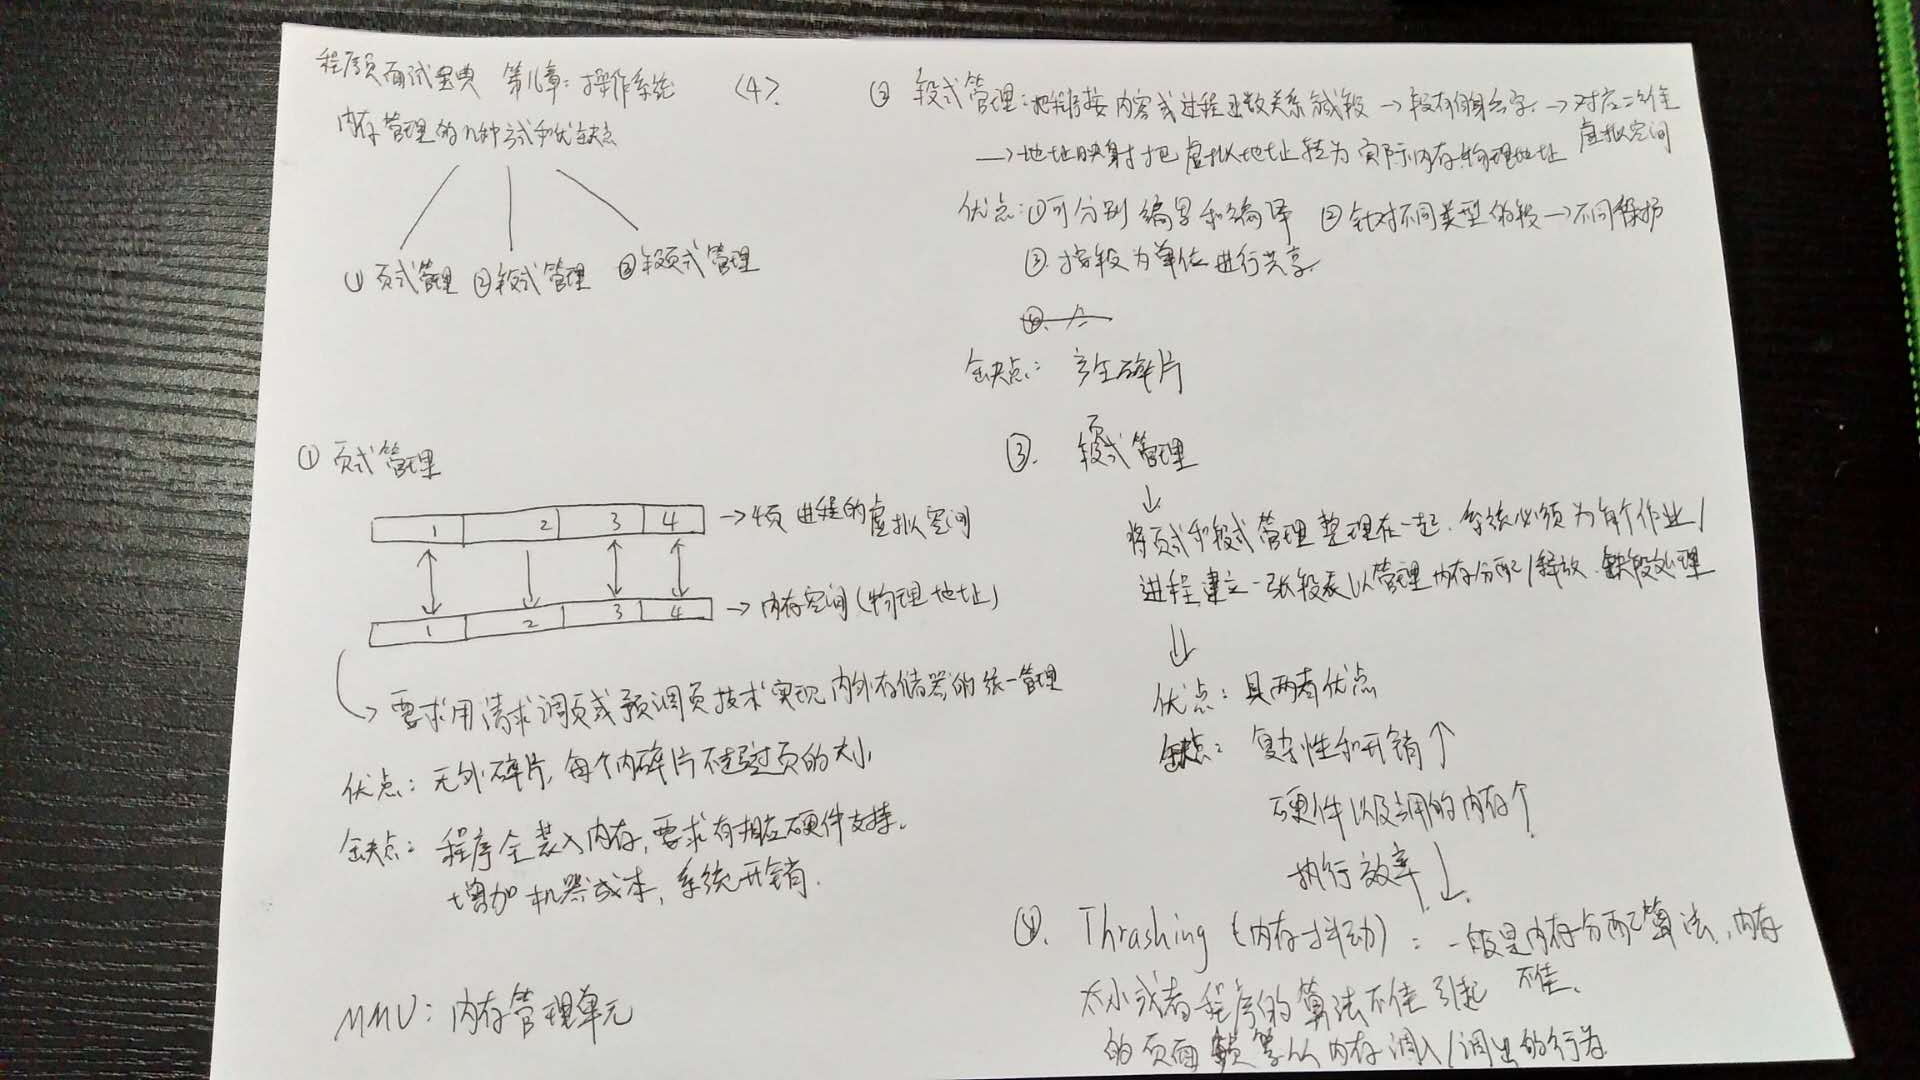 程序员面试宝典 第八章:操作系统 <4>
内存管理的几种方式和优缺点
① 页式管理 ②段式管理 ③段页式管理
① 页式管理
1 2 3 4 →4页 进程的虚拟空间
1 2 3 4 → 内存空间(物理地址)
→ 要求用请求调页或预调页技术实现内外存储器的统一管理
优点:无外碎片,每个内碎片不超过页的大小
缺点:程序全装入内存,要求有相应硬件支持.
增加机器成本,系统开销.
MMU:内存管理单元
② 段式管理:把程序按内容或过程函数关系成段 → 段有自身名字. → 对应二维
虚拟空间
→ 地址映射把虚拟地址转为实际内存物理地址
优点:①可分别编写和编译 ②针对不同类型的段→不同保护
③.按段为单位进行共享.
缺点: 产生碎片
③. 段页式管理
↓
将页式和段式管理整理在一起.系统必须为每个作业/
进程建立一张段表以管理内存分配/释放.缺段处理
⇓
优点:具两者优点
缺点:复杂性和开销↑
硬件以及占用的内存↑
执行效率↓
④. Thrashing (内存抖动):一般是内存分配算法,内存
太小或者程序的算法不佳引起 不佳.
的页面频繁从内存调入/调出的行为.